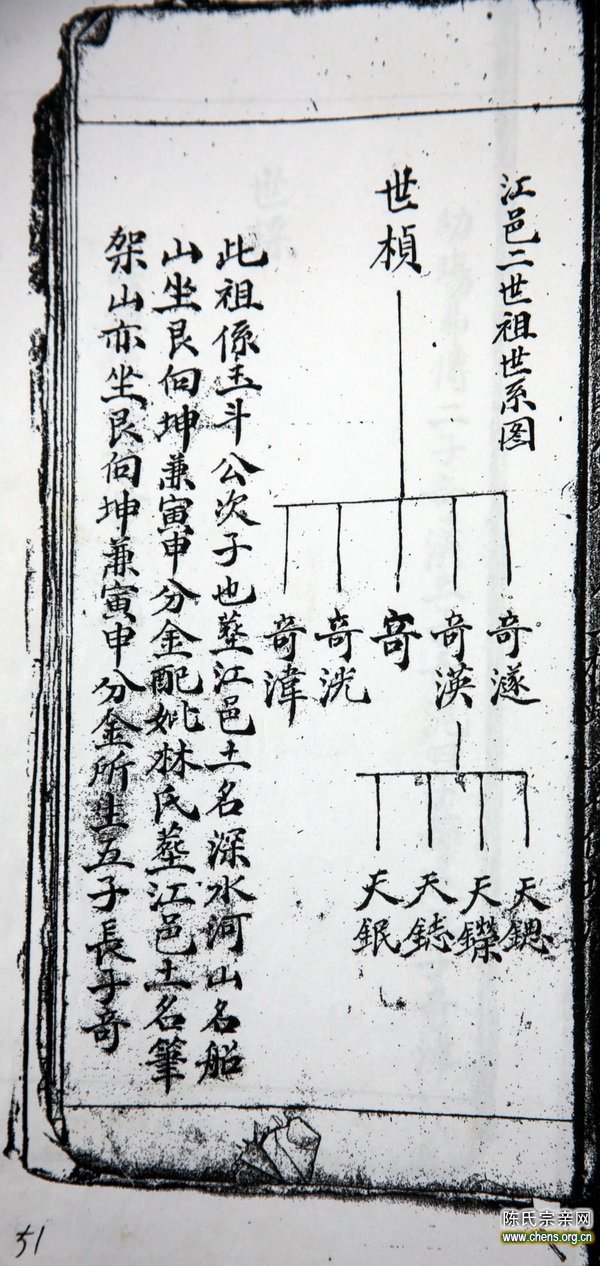 江邑二世祖世系图
世楨
奇邃
奇渶
寄
奇洸
奇湋
天鍶
天鑅
天鋕
天鈱
此祖係玉斗公次子也塟江邑土名深水河山名船
山坐艮向坤兼寅申分金配妣林氏塟江邑土名筆
架山亦坐艮向坤兼寅申分金所生五子長子奇
51
陈氏宗亲网
www.chens.org.cn